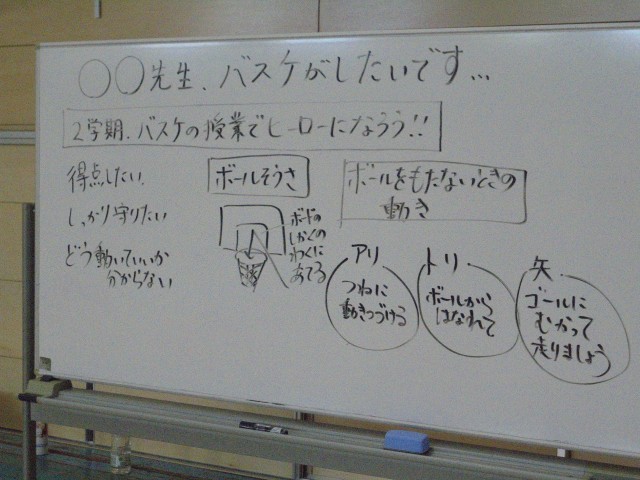 ○○先生、バスケがしたいです…
2学期、バスケの授業でヒーローになろう!!
得点したい
しっかり守りたい
どう動いていいか
分からない
ボールそうさ
ボードの
しかくの
わくに
あてる
ボールをもたないときの
動き
アリ
つねに
動きつづける
トリ
ボールから
はなれて
矢
ゴールに
むかって
走りましょう